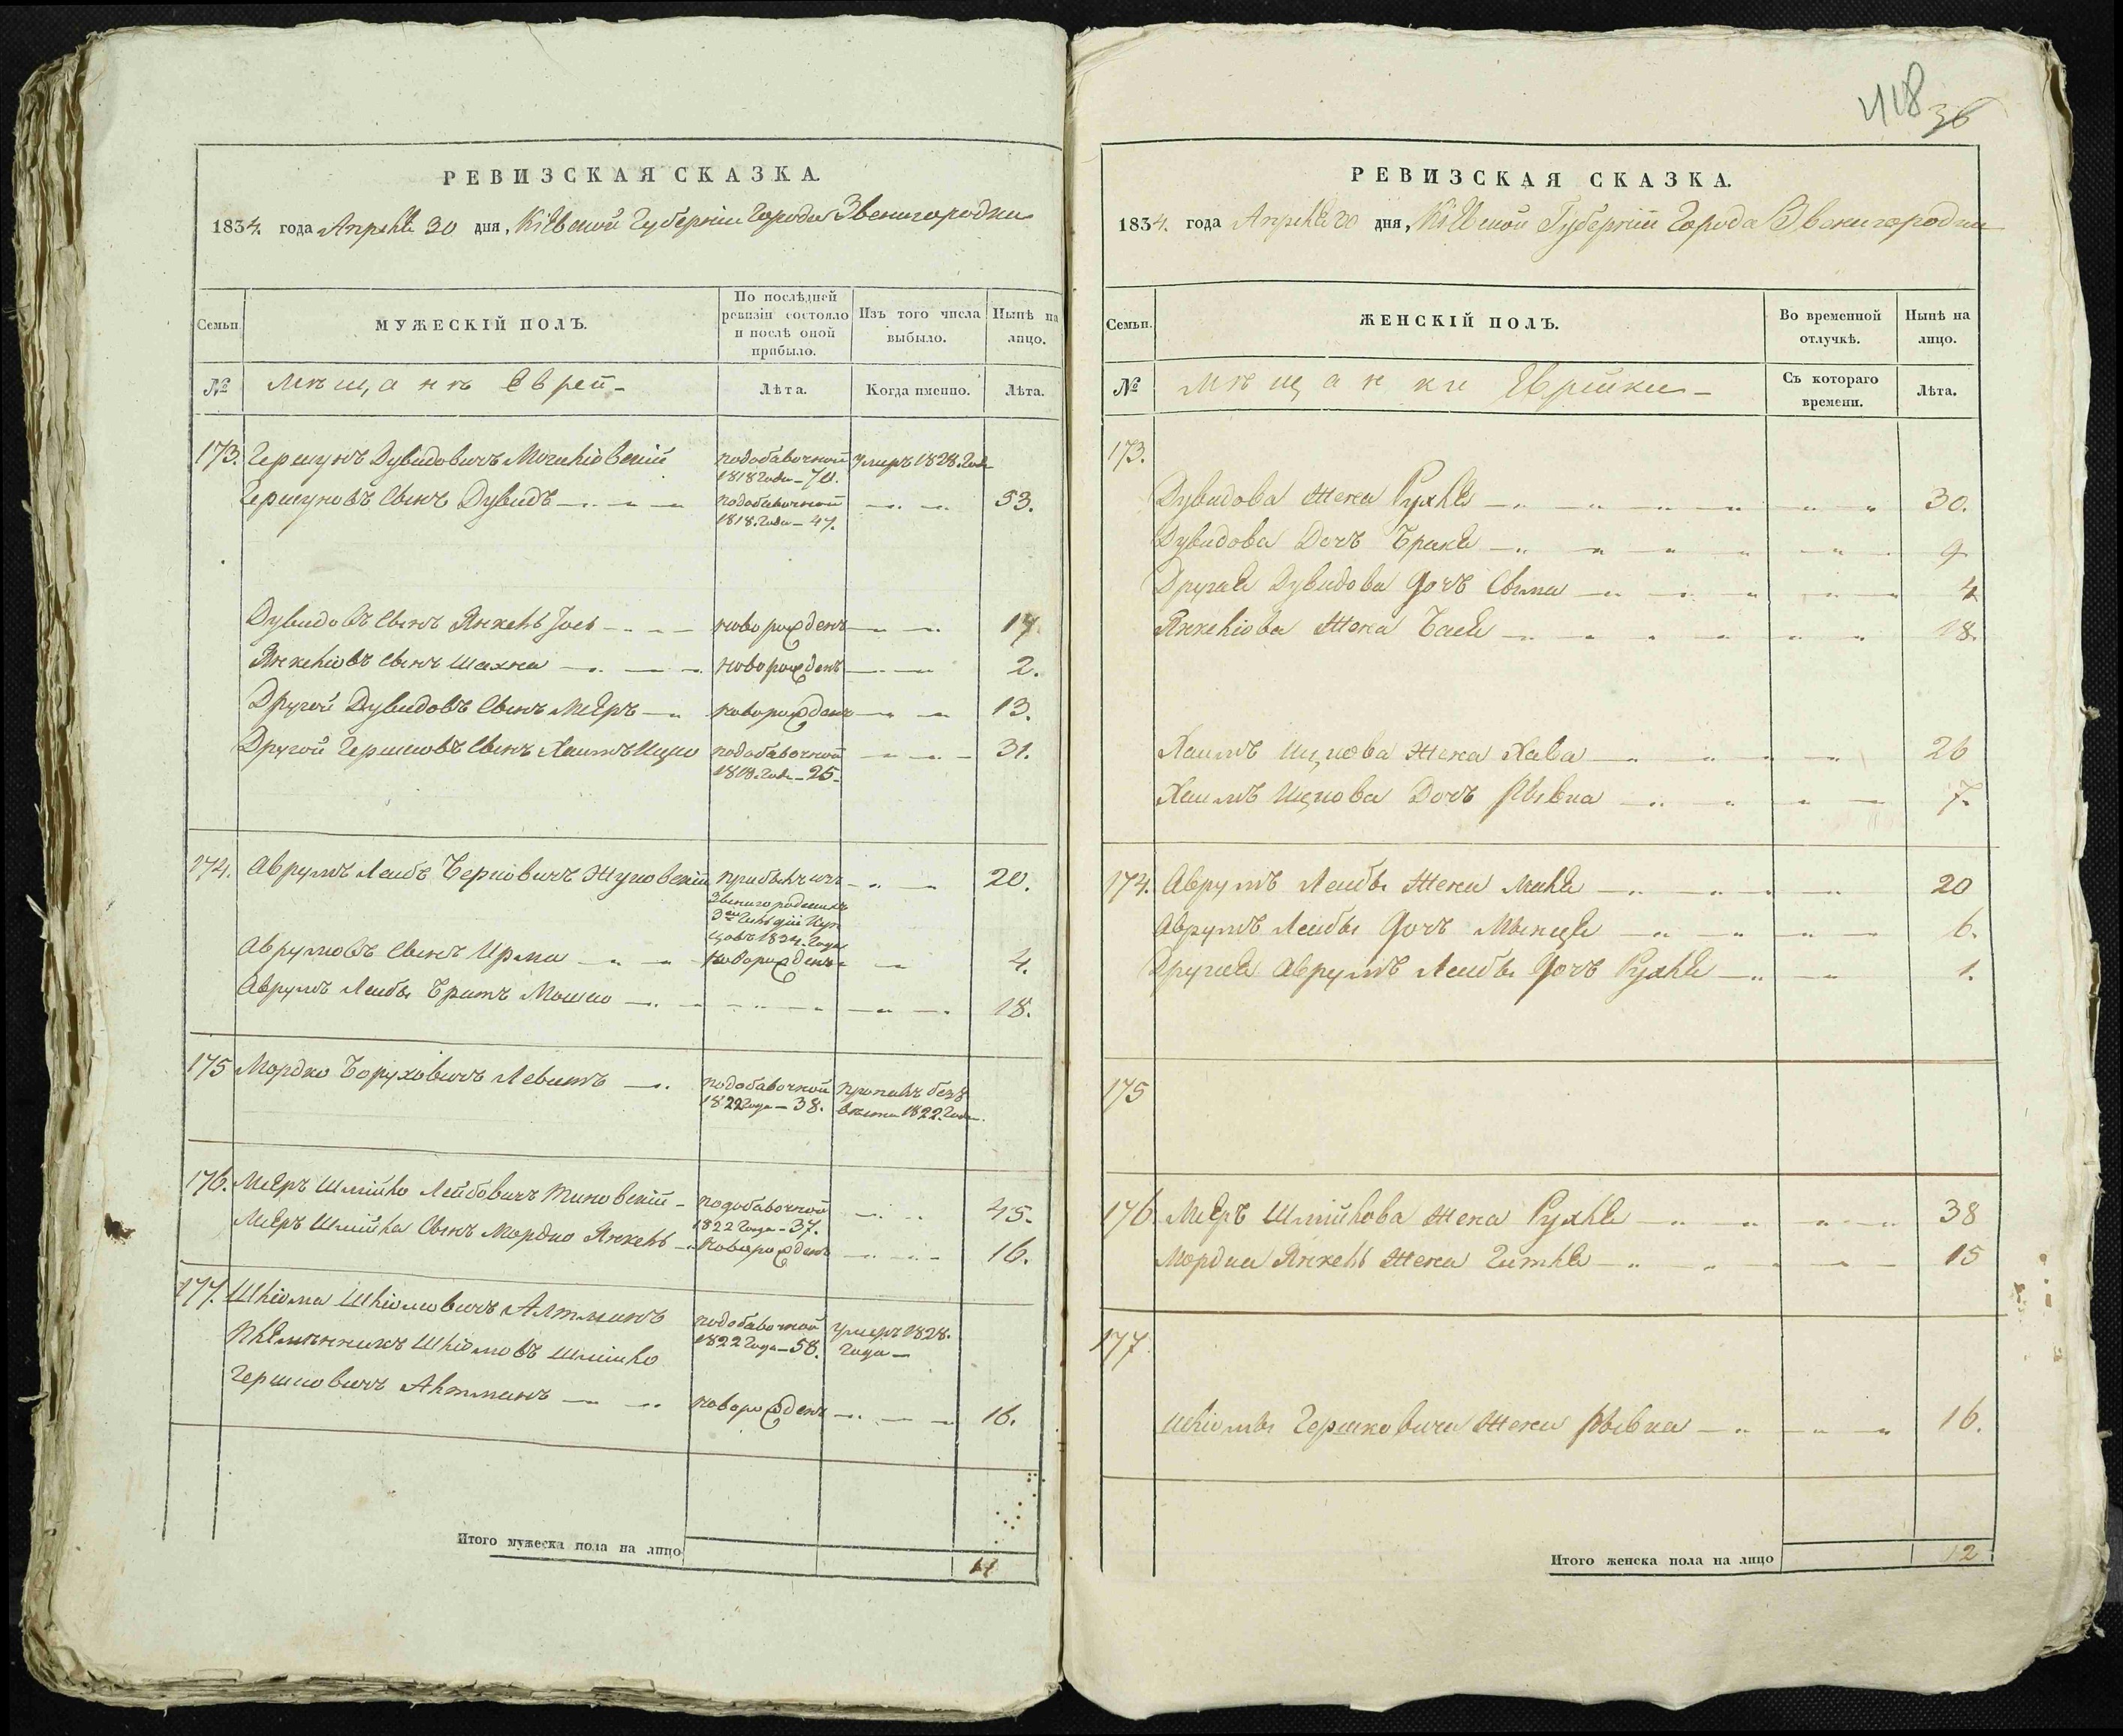 418
36
РЕВИЗСКАЯ СКАЗКА.
1834. года Апреля 30 дня, Кіевской Губерніи Города Звенигородки
Семьи.
МУЖЕСКІЙ ПОЛЪ.
По послѣдней ревизіи состояло и послѣ оной прибыло.
Изъ того числа выбыло.
Нынѣ на лицо.
№
Мѣщанъ Еврей
Лѣта.
Когда именно.
Лѣта.
173. Гершунъ Дувидовичъ подобавочной 1818 года – 70. умеръ 1828. года
Гершуновъ Сынъ Дувидъ подобавочной 1818. года – 47. 53.
Дувидовъ Сынъ Янкель Іось новорожденъ 17.
Янкеліовъ Сынъ Шахна новорожденъ 2.
Другой Дувидовъ Сынъ Меяръ новорожденъ 13.
Другой Гершковъ Сынъ Хаимъ Ицко подобавочной 25. 31.
174. Аврумъ Леибъ Берковичъ прибылъ изъ Звенигородскихъ 3ей Гильдіи Купцовъ 1834. года 20.
Аврумовъ Сынъ Ирма новорожденъ 4.
Аврумъ Леибы Братъ Мошко 18.
175 Мордко Боруховичъ Левитъ подобавочной 1822 года – 38. пропалъ безъ 1822. года
176. Меяръ Шмійло Лейбовичъ подобавочной 1822 года – 37. 45.
Меяръ Шмійла Сынъ Мордко Янкель новорожденъ 16.
177. Шліома Шліомовичъ Алтманъ подобавочной 1822 года – 58. умеръ 1828. года
Племянникъ Шліомовъ
Гершковичъ Алтманъ новорожденъ 16.
Итого мужеска пола на лицо 11
РЕВИЗСКАЯ СКАЗКА.
1834. года Апреля дня, Кіевской Губерніи Города Звенигородки
Семьи.
ЖЕНСКІЙ ПОЛЪ.
Во временной отлучкѣ.
Нынѣ на лицо.
№
Мѣщанки Еврейки
Съ котораго времени.
Лѣта.
173.
Дувидова Жена Рухля 30.
Дувидова Дочъ 9
Другая Дувидова Дочъ Сыма 4
Янкеліова Жена Бася 18.
Хаимъ Ицкова Жена Хава 26
Хаимъ Ицкова Дочъ Рывка 7.
174. Аврумъ Леибы Жена 20
Аврумъ Леибы Дочъ 6.
Другая Аврумъ Леибы Дочъ Рухля 1.
175
176 Меяръ Шмійлова Жена Рухля 38
Мордка Янкель Жена Гитля 15
177
Шліомы Гершковича Жена Рывка 16.
Итого женска пола на лицо 12